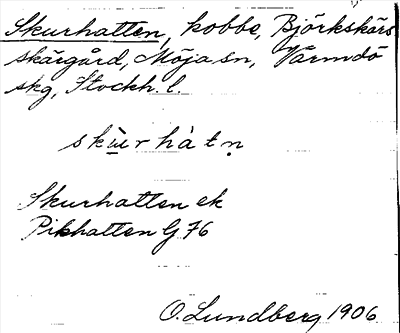 Skurhatten, kobbe, Björkskärs
skärgård, Möja sn, Värmdö
skg, Stockh. l.
skùrhàtṇ
Skurhatten ek
Pikhatten G 76
O. Lundberg 1906